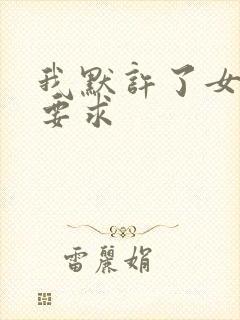 我默許了女
要求
雷麗娟